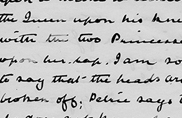 the Queen upon his knee
with the two Princesse
upon her lap. I am so
to say that the heads are
broken off; Petrie says t